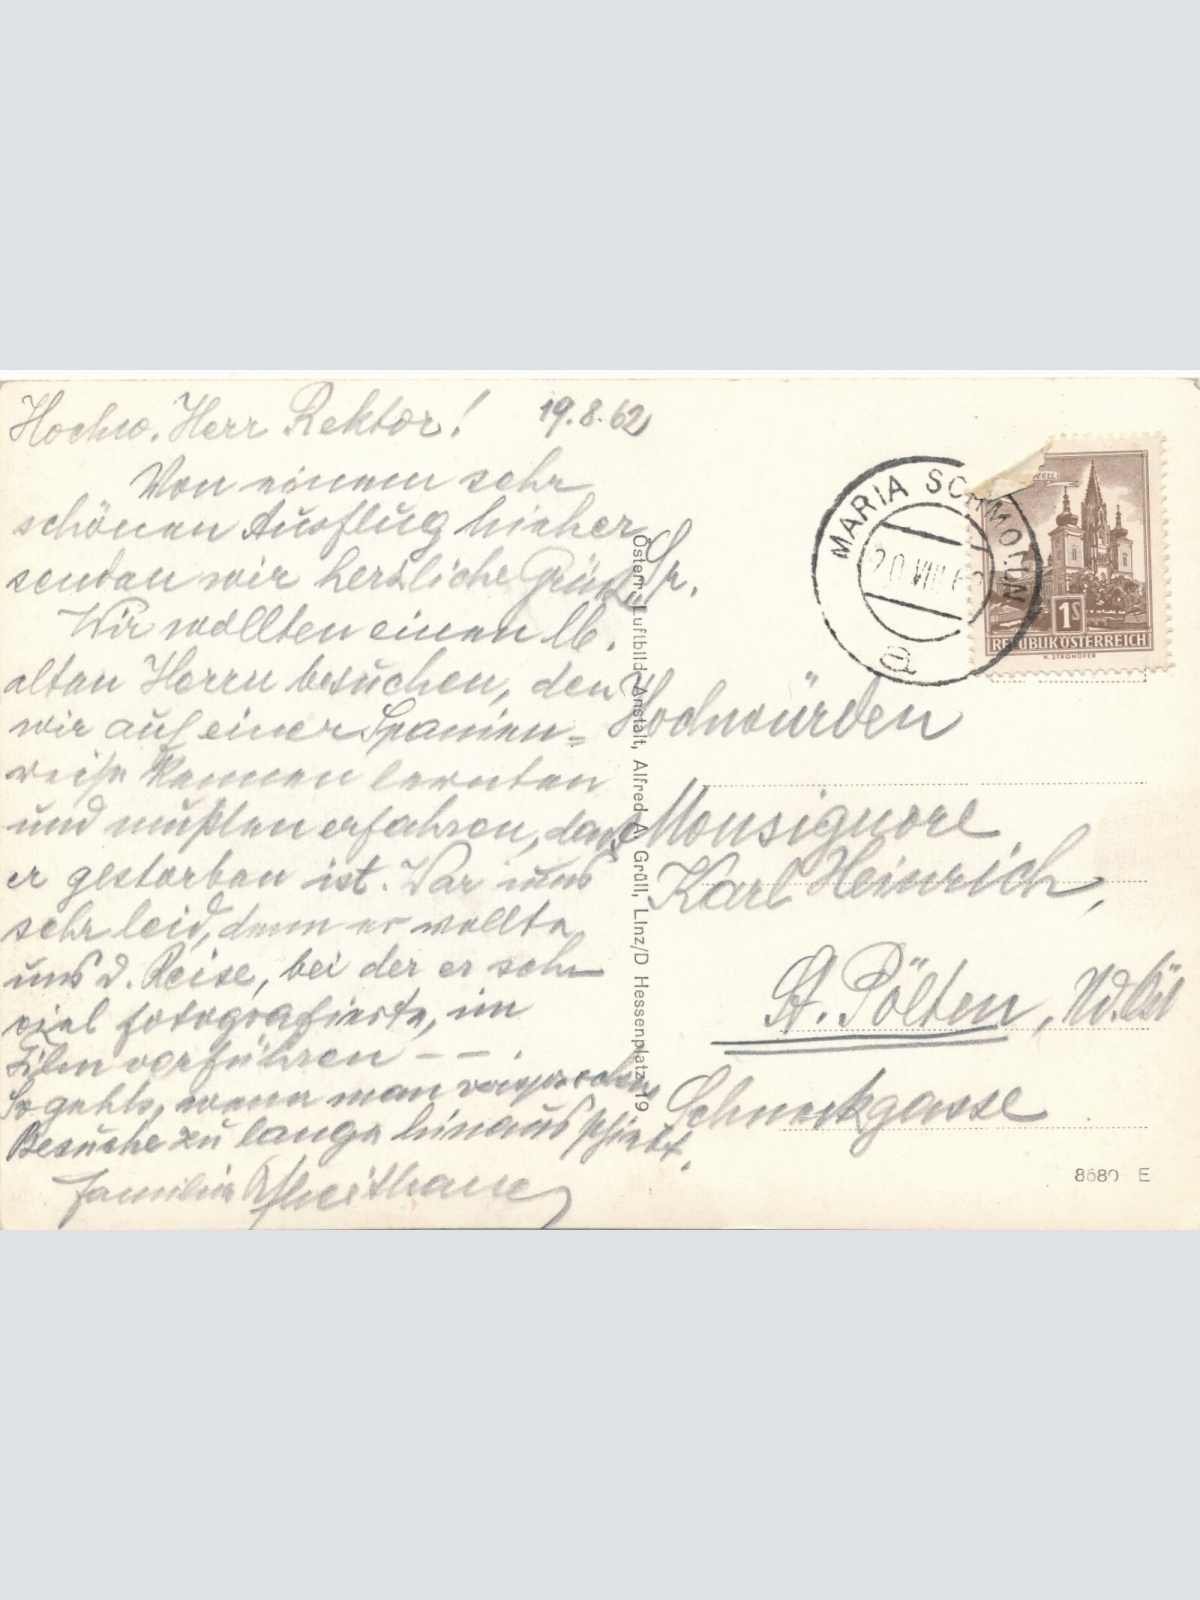 Hochw. Herr Rektor! 19.8.62
Von einem sehr
schönen Ausflug hieher
senden wir herzliche Grüße.
Wir wollten einen lb.
alten Herrn besuchen, den
wir auf einer Spanien=
reise kennen lernten
und mußten erfahren, dass
er gestorben ist. War uns
sehr leid, denn er wollte
uns d. Reise, bei der er sehr
viel fotografierte, im
Film vorführen – – .
So gehts, wenn man versprochene
Besuche zu lange hinausschiebt.
Familie
Österr. Luftbild-Anstalt, Alfred A. Grüll, Linz/D Hessenplatz 19
MARIA SCHMOLLN
20.VIII.6
a
1S
REPUBLIK ÖSTERREICH
H. STROHOFER
Sr.
Hochwürden
Monsignore
Karl Heinrich,
St. Pölten, N.Ö.
Schneckgasse
8680 E